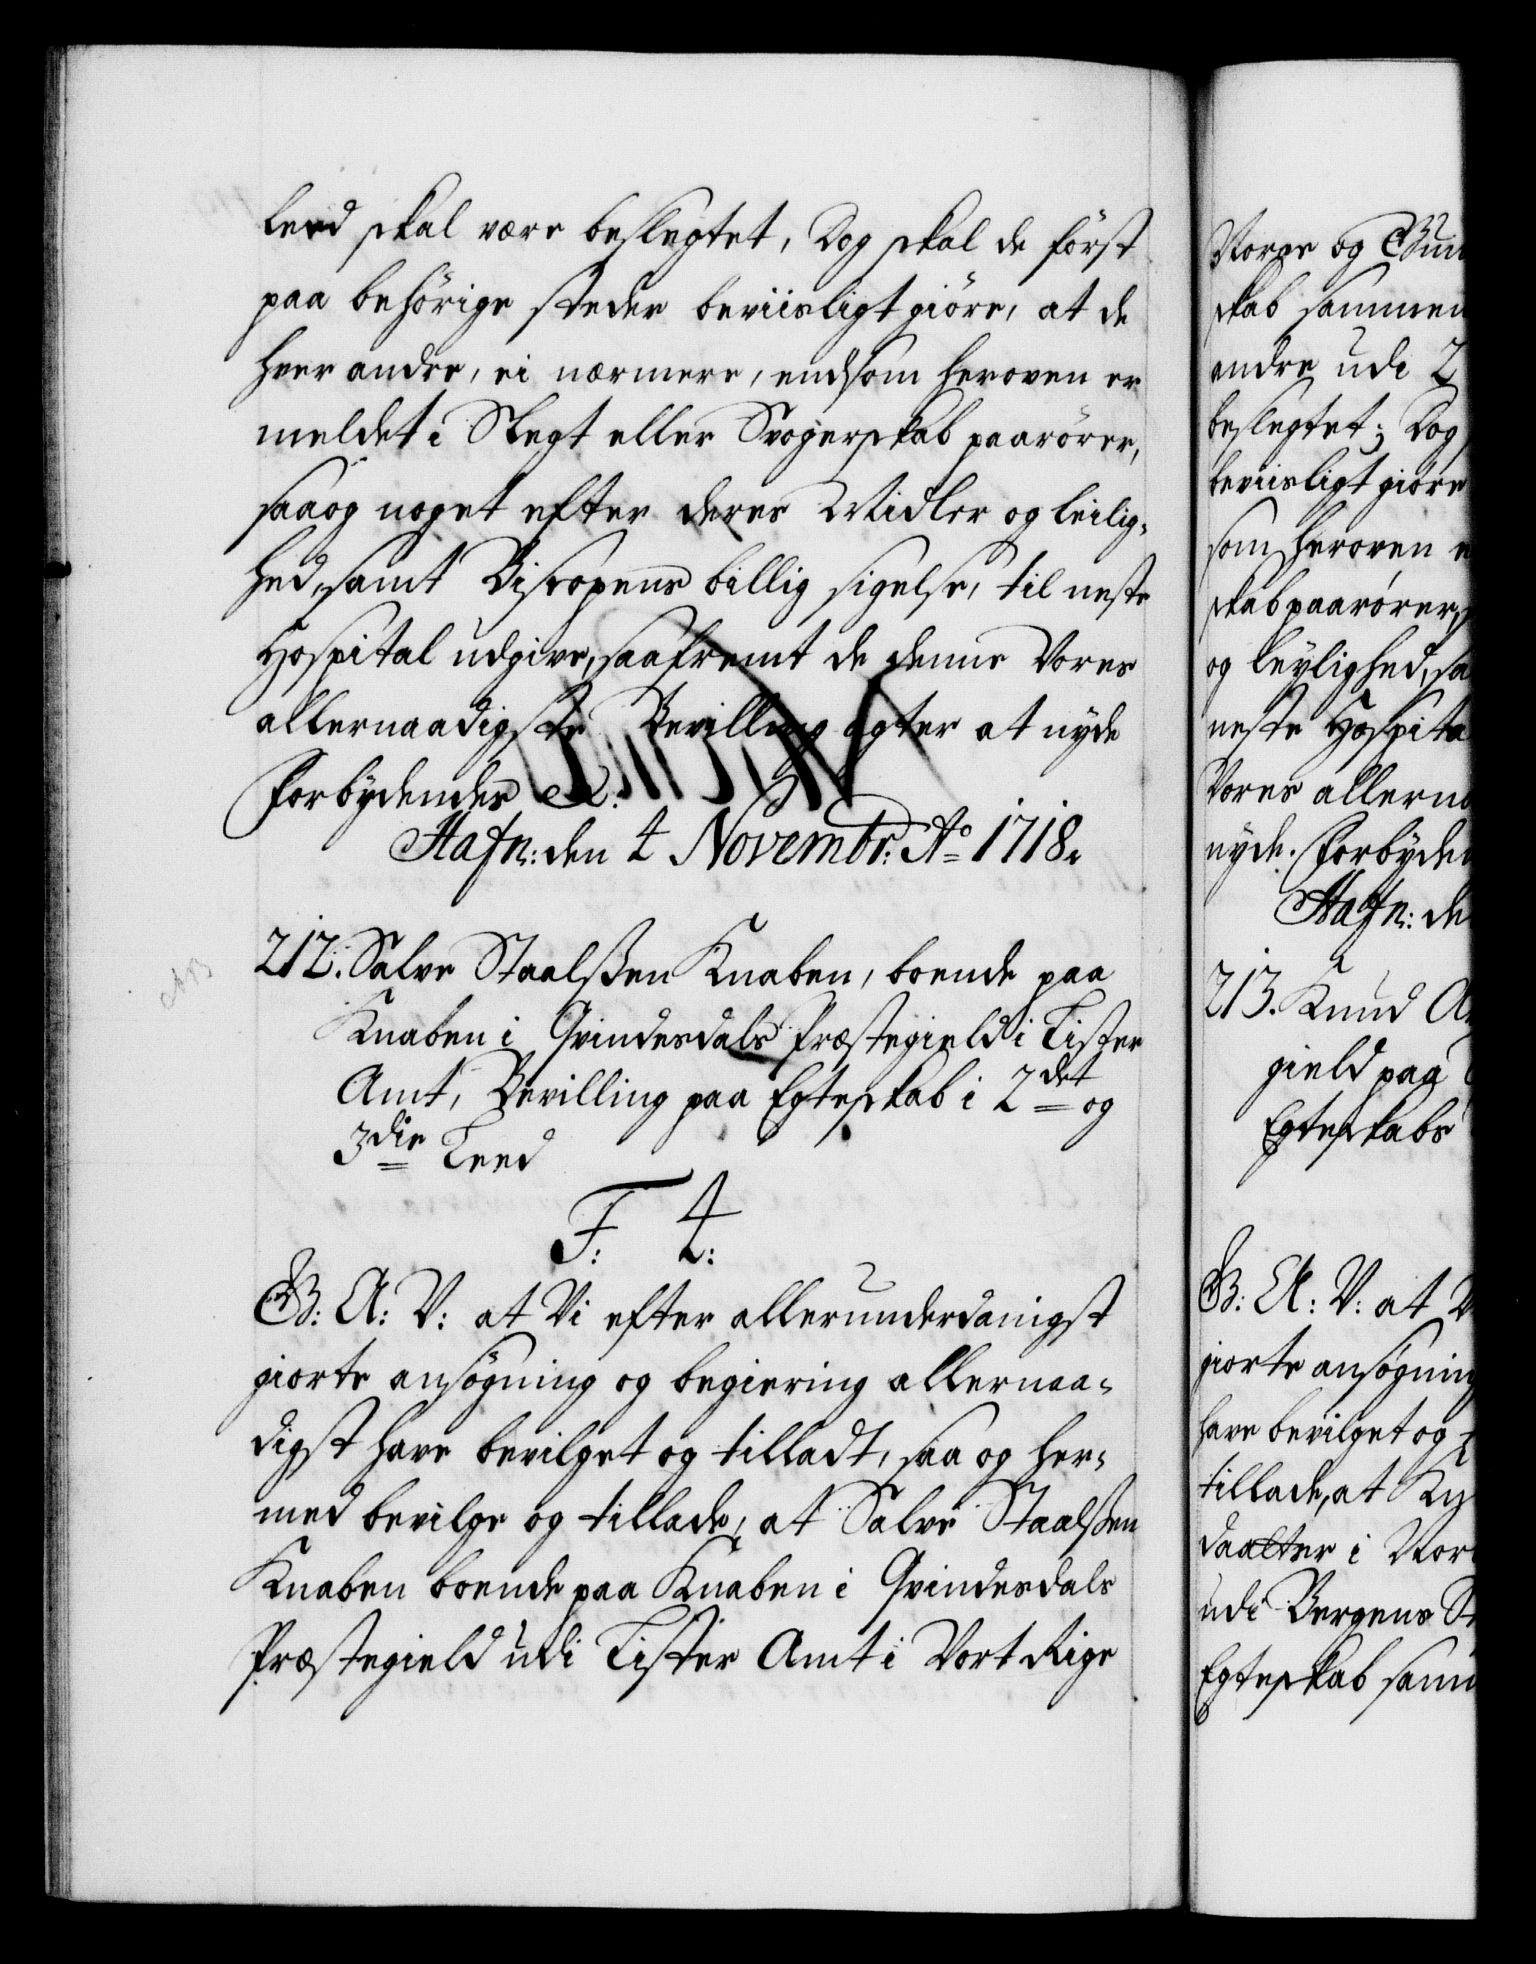 leed skal være beslegtet, Dog skal de först
paa behörige steder beviisligt giöre, at de
hver andre, ei nærmere, end som heroven er
meldet i Slegt eller Svogerskab paarörer,
saa og noget efter deres Midler og leilig-
hed, samt Biscopens billig sigelse, til neste
Hospital udgive, saafremt de denne Vores
allernaadigste Bevilling agter at nyde
Forbydendes &:
Hafn: den 4 Novembr: Ao 1718.
212. Salve Staalßen Knaben, boende paa
Knaben i Qvindesdals Præstegield i Lister
Amt, Bevilling paa Egteskab i 2det og
3die Leed
F: 4:
G: A: V: at Vi efter allerunderdanigst
giorte ansögning og begiering allernaa-
digst have bevilget og tilladt, saa og her-
med bevilge og tillade, at Salve Staalßen
Knaben boende paa Knaben i Qvindesdals
Præstegield udi Lister Amt i Vort Rige
Norge og Gun
skab sammen
andre udi 2
beslegtet; Dog
beviisligt giöre
som heroven e
skab paarörer,
og leylighed, sa
neste Hospita
Vores allerna
nyde. Forbyden
Hafn: de
213. Knud
gield paa
Egteskabs
G: A: V: at V
giorte ansögning
have bevilget og
tillade, at
i Nor
udi Bergens St
Egteskab sam